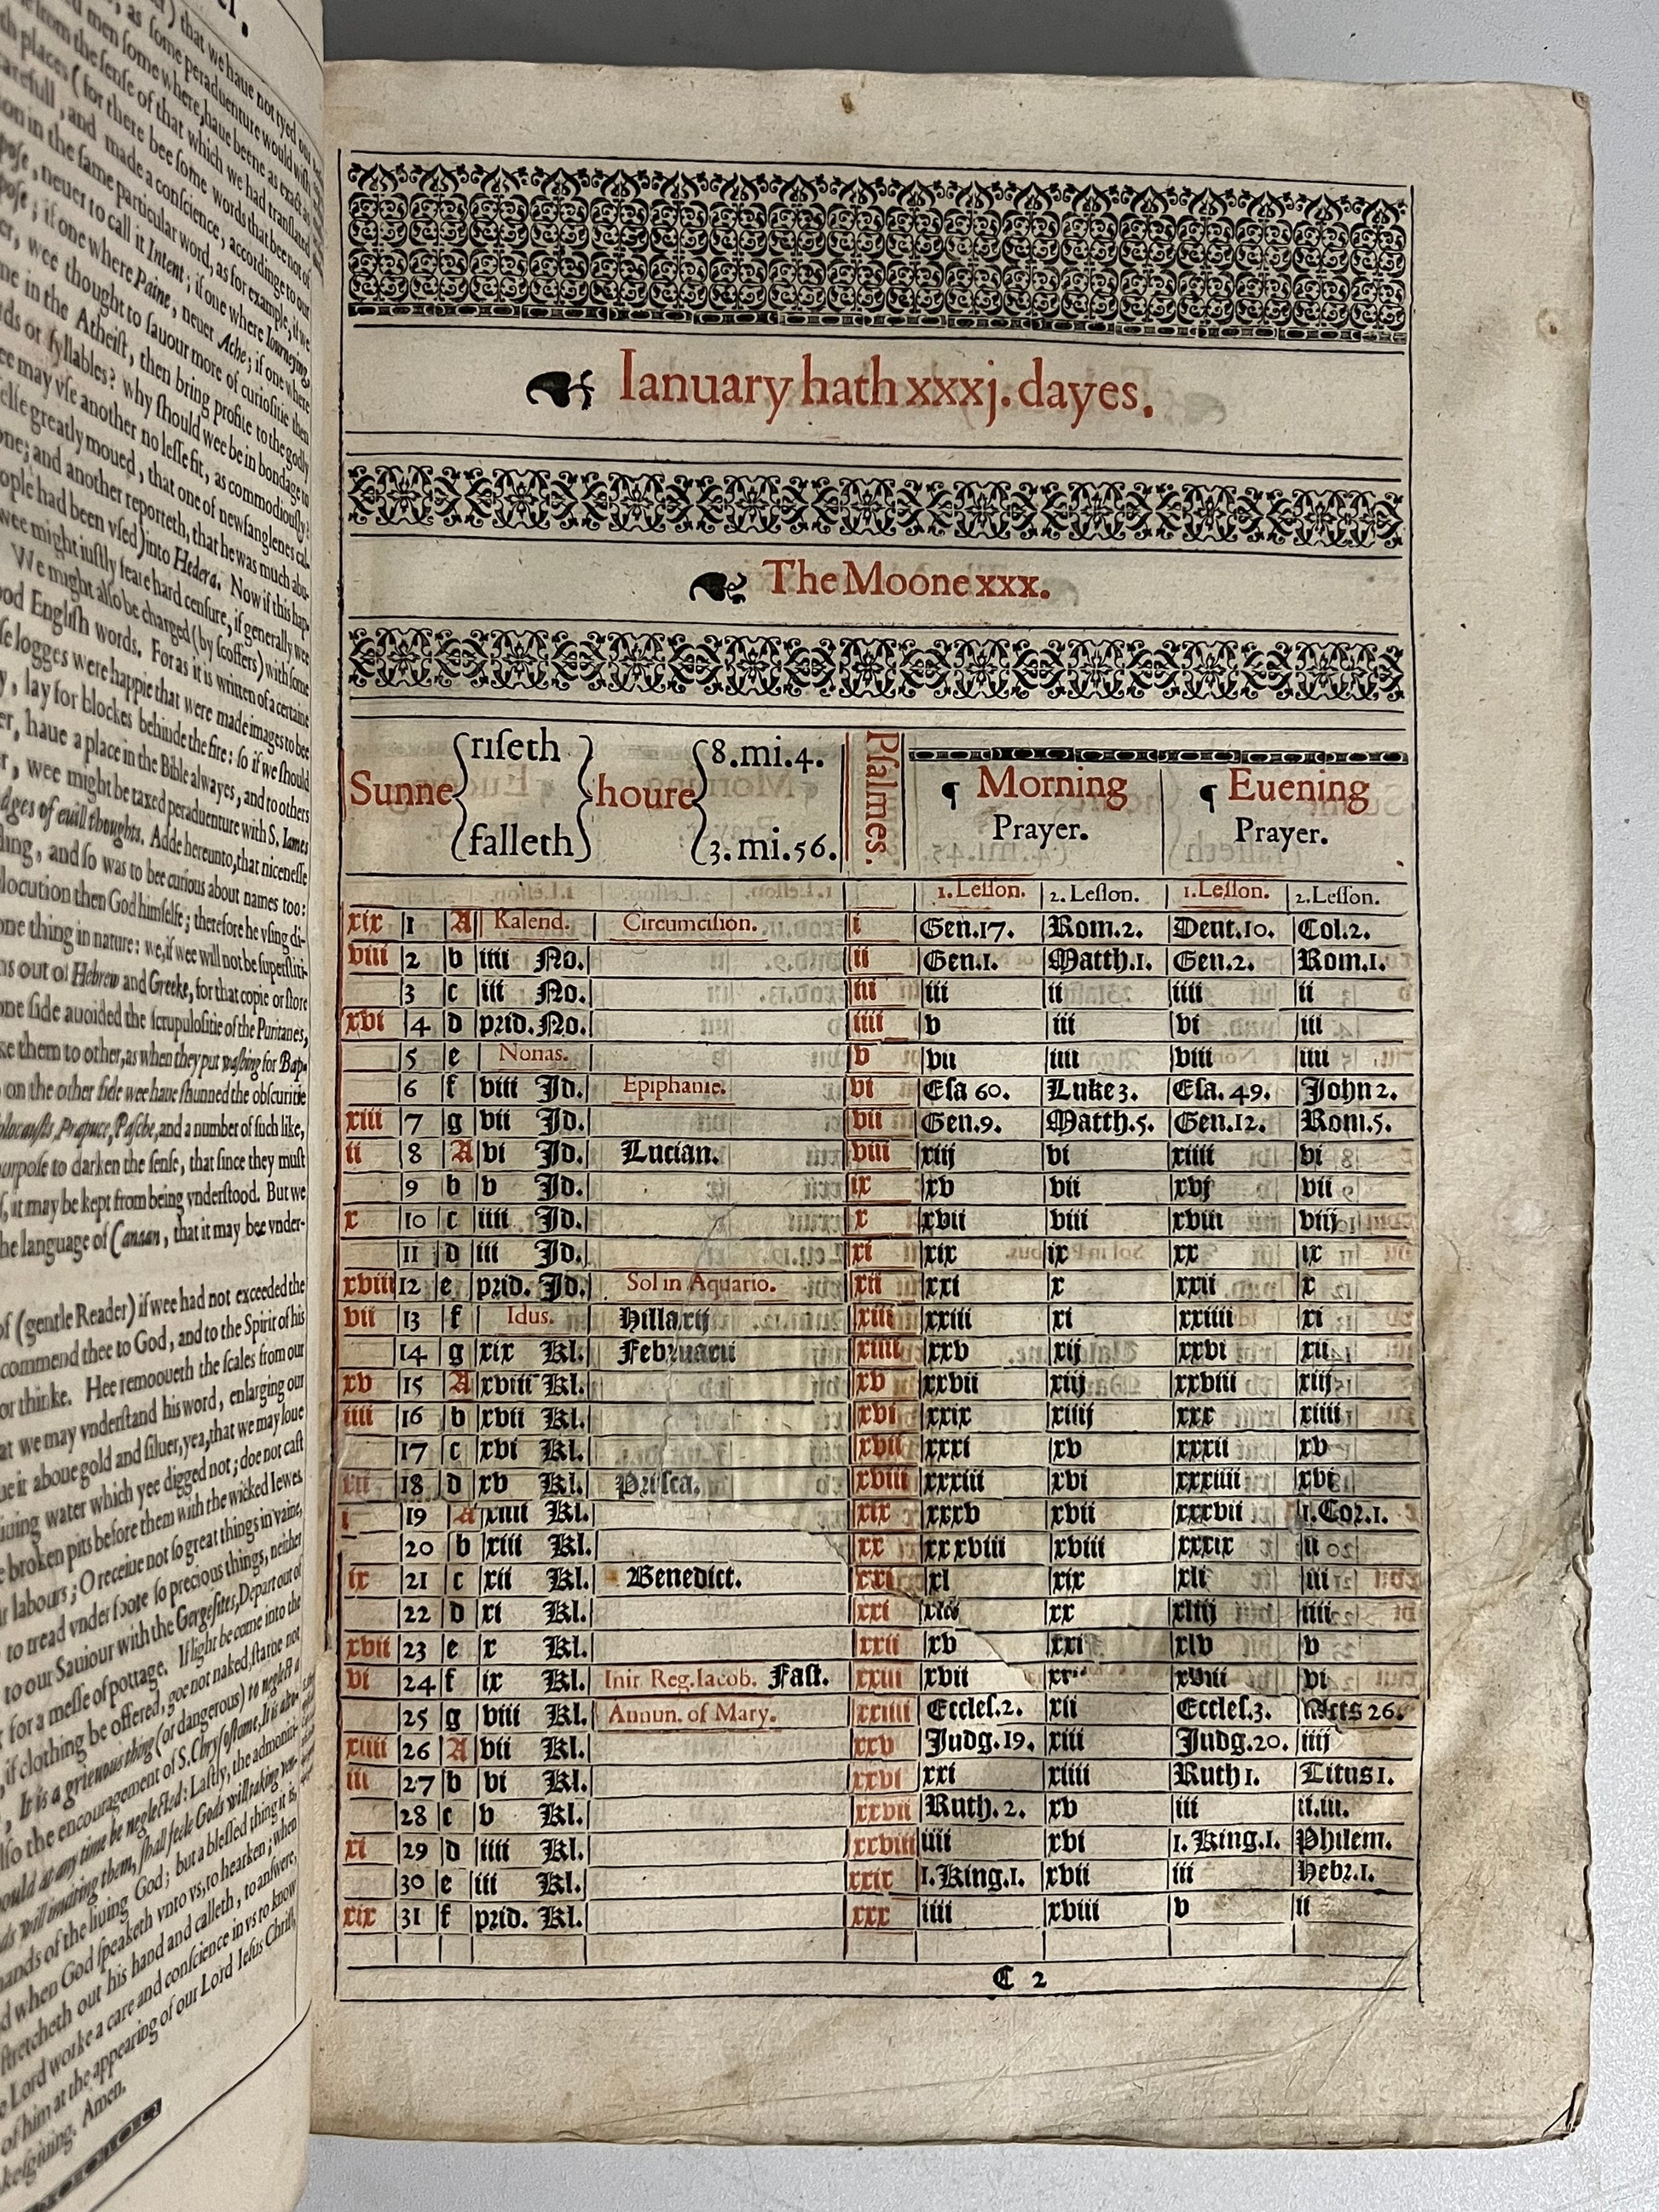 ) that we haue not tyed our
, as ſome peraduenture would wiſh
men ſome where, haue beene as exact as
from the ſenſe of that which we had tranſlated
th places (for there bee ſome words that bee not of
carefull, and made a conſcience, according to our
ion in the ſame particular word, as for example, if we
poſe, neuer to call it Intent; if one where Iourneying,
poſe; if one where Paine, neuer Ache; if one where
er, wee thought to ſauour more of curioſitie then
me in the Atheiſt, then bring profite to the godly
ds or ſyllables? why ſhould wee be in bondage to
ee may vſe another no leſſe fit, as commodiouſly?
elſe greatly moued, that one of newfanglenes cal-
one; and another reporteth, that he was much abu-
ople had been vſed) into Hedera. Now if this hap-
wee might iuſtly feare hard cenſure, if generally wee
We might alſo be charged (by ſcoffers) with ſome
ood Engliſh words. For as it is written of a certaine
ſe logges were happie that were made images to bee
y, lay for blockes behinde the fire: ſo if we ſhould
er, haue a place in the Bible alwayes, and to others
r, wee might be taxed peraduenture with S. Iames
dges of euill thoughts. Adde hereunto, that niceneſſe
ing, and ſo was to bee curious about names too:
locution then God himſelfe; therefore he vſing di-
one thing in nature: we, if wee will not be ſuperſtiti-
ns out of Hebrew and Greeke, for that copie or ſtore
one ſide auoided the ſcrupuloſitie of the Puritanes,
ke them to other, as when they put waſhing for Bap-
on the other ſide wee haue ſhunned the obſcuritie
olocauſts, Præpuce, Paſche, and a number of ſuch like,
purpoſe to darken the ſenſe, that ſince they muſt
, it may be kept from being vnderſtood. But we
he language of Canaan, that it may bee vnder-
of (gentle Reader) if wee had not exceeded the
commend thee to God, and to the Spirit of his
or thinke. Hee remooueth the ſcales from our
at we may vnderſtand his word, enlarging our
ue it aboue gold and ſiluer, yea, that we may loue
iuing water which yee digged not; doe not caſt
e broken pits before them with the wicked Iewes.
r labours; O receiue not ſo great things in vaine,
to tread vnder foote ſo precious things, neither
to our Sauiour with the Gergeſites, Depart out of
for a meſſe of pottage. If light be come into the
, if clothing be offered, goe not naked, ſtarue not
, It is a grieuous thing (or dangerous) to neglect a
lſo the encouragement of S. Chryſoſtome, It is
ould at any time be neglected: Laſtly, the admoniti-
ds will inuiting them, ſhall feele Gods will taking ven-
hands of the liuing God; but a bleſſed thing it is,
d when God ſpeaketh vnto vs, to hearken; when
ſtretcheth out his hand and calleth, to anſwere,
e Lord worke a care and conſcience in vs to know
of him at the appearing of our Lord Ieſus Chriſt,
keſgiuing. Amen.
Ianuary hath xxxj. dayes.
The Moone xxx.
Sunne riſeth falleth houre 8.mi.4. 3.mi.56. Pſalmes. ¶ Morning Prayer. ¶ Euening Prayer.
1.Leſſon. 2.Leſſon. 1.Leſſon. 2.Leſſon.
xix 1 A Kalend. Circumciſion. i Gen.17. Rom.2. Deut.10. Col.2.
viii 2 b iiii No. ii Gen.1. Matth.1. Gen.2. Rom.1.
3 c iii No. iii iii ii iiii ii
xvi 4 d prid.No. iiii v iii vi iii
5 e Nonas. v vii iiii viii iiii
6 f viii Id. Epiphanie. vi Eſa 60. Luke 3. Eſa.49. John 2.
xiii 7 g vii Id. vii Gen.9. Matth.5. Gen.12. Rom.5.
ii 8 A vi Id. Lucian. viii xiij vi xiiii vi
9 b v Id. ix xv vii xvj vii
x 10 c iiii Id. x xvii viii xviii viij
11 d iii Id. xi xix ix xx ix
xviii 12 e prid. Id. Sol in Aquario. xii xxi x xxii x
vii 13 f Idus. Hillarij xiii xxiii xi xxiiii xi
14 g xix Kl. Februarii xiiii xxv xij xxvi xii
xv 15 A xviii Kl. xv xxvii xiij xxviii xiij
iiii 16 b xvii Kl. xvi xxix xiiij xxx xiiii
17 c xvi Kl. xvii xxxi xv xxxii xv
xii 18 d xv Kl. Priſca. xviii xxxiii xvi xxxiiii xvi
i 19 A xiiii Kl. xix xxxv xvii xxxvii 1.Cor.1.
20 b xiii Kl. xx xxxviii xviii xxxix ii
ix 21 c xii Kl. Benedict. xxi xl xix xli iii
22 d xi Kl. xxi xx xliij iiii
xvii 23 e x Kl. xxii xv xxi xlv v
vi 24 f ix Kl. Init Reg.Iacob. Faſt. xxiii xvii xviii vi
25 g viii Kl. Annun. of Mary. xxiiii Eccleſ.2. xii Eccleſ.3. Acts 26.
xiiii 26 A vii Kl. xxv Judg.19. xiii Judg.20. iiij
iii 27 b vi Kl. xxvi xxi xiiii Ruth 1. Titus 1.
28 c v Kl. xxvii Ruth.2. xv iii ii.iii.
xi 29 d iiii Kl. xxviii iiii xvi 1.King.1. Philem.
30 e iii Kl. xxix 1.King.1. xvii iii Hebr.1.
xix 31 f prid. Kl. xxx iiii xviii v ii
C 2